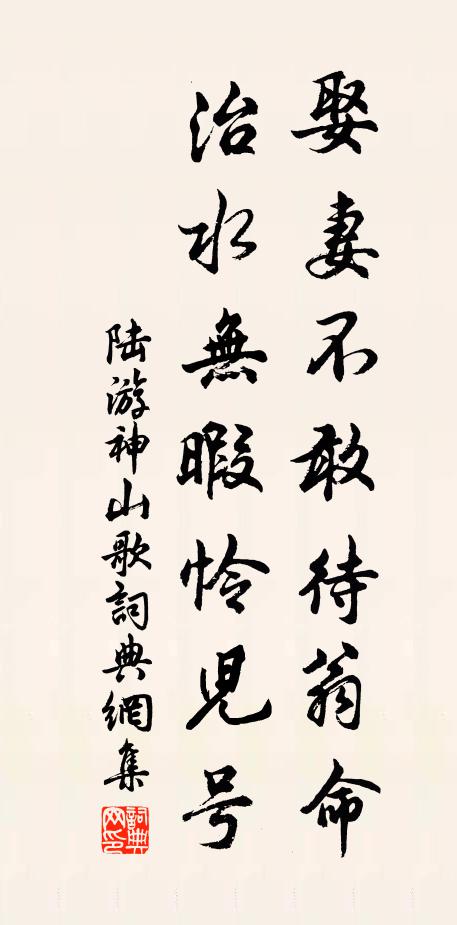 娶妻不敢待翁命
治水無暇怜児号
陆游神山歌詞典網集
詞典网印